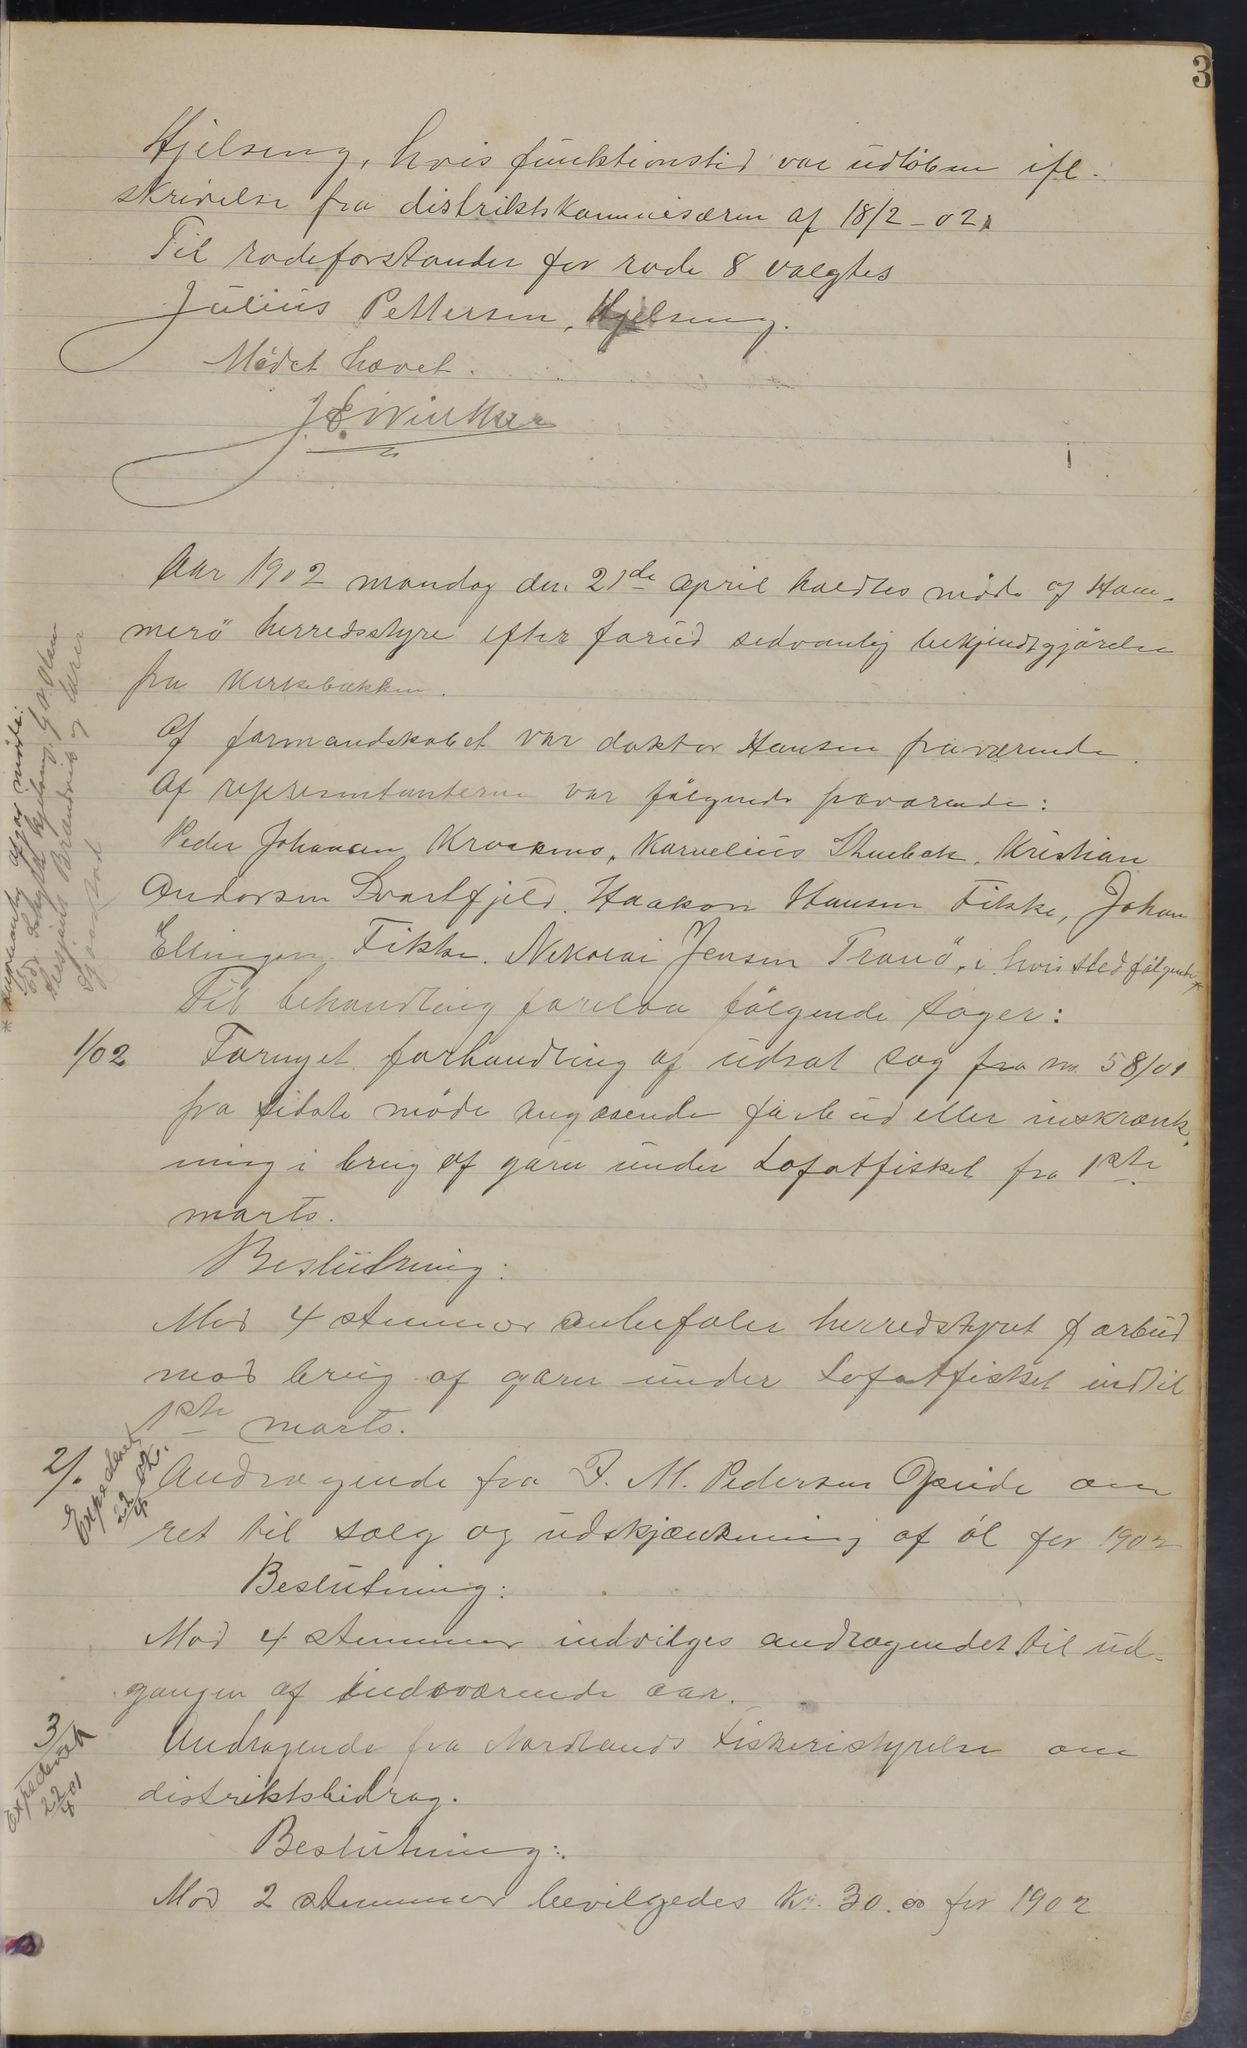 3
Hjelseng, hvis funktionstid var udløben ifl.
skrivelse fra distriktskommisæren af 18/2-02.
Til rodeforstander for rode 8 valgtes
Julius Pettersen, Hjelseng.
Mødet hævet.
Aar 1902 mandag den 21de april holdtes møde af Ham-
merö herredsstyre efter forud sedvanlig bekjendtgjörelse
fra kirkebakken.
Af formandskabet var doktor Hansen fraværende.
Af representanterne var følgende fraværende:
Peder Johansen Kraakmo, Karnelius Stuebak, Kristian
Andorsen Svartfjeld, Haakon Hansen Fikke, Johan
Ellingsen Fikke, Nikolai Jensen Tranö, i hvis sted følgende*
*
møtte:
Hjelseng
Olsen
og
Til behandling forelaa følgende sager:
1/02 Fornyet forhandling af udsat sag fra no 58/01
fra sidste møde angaaende forbud eller inskrænk-
ning i brug af garn under Lofotfisket fra 1ste
marts.
Beslutning:
Mod 4 stemmer anbefaler herredstyret forbud
mod brug af garn under Lofotfisket indtil
1ste marts.
2/. Andragende fra J. M. Pedersen Opeide om
Expederet
22/4 02.
ret til salg og udskjænkning af öl for 1902
Beslutning:
Mod 4 stemmer indvilges andragendet til ud-
gangen af indeværende aar.
3/ Andragende fra Nordlands Fiskeristyrelse om
Expederet
22/4 01
distriktsbidrag.
Beslutning:
Mod 2 stemmer bevilgedes Kr. 30.00 for 1902